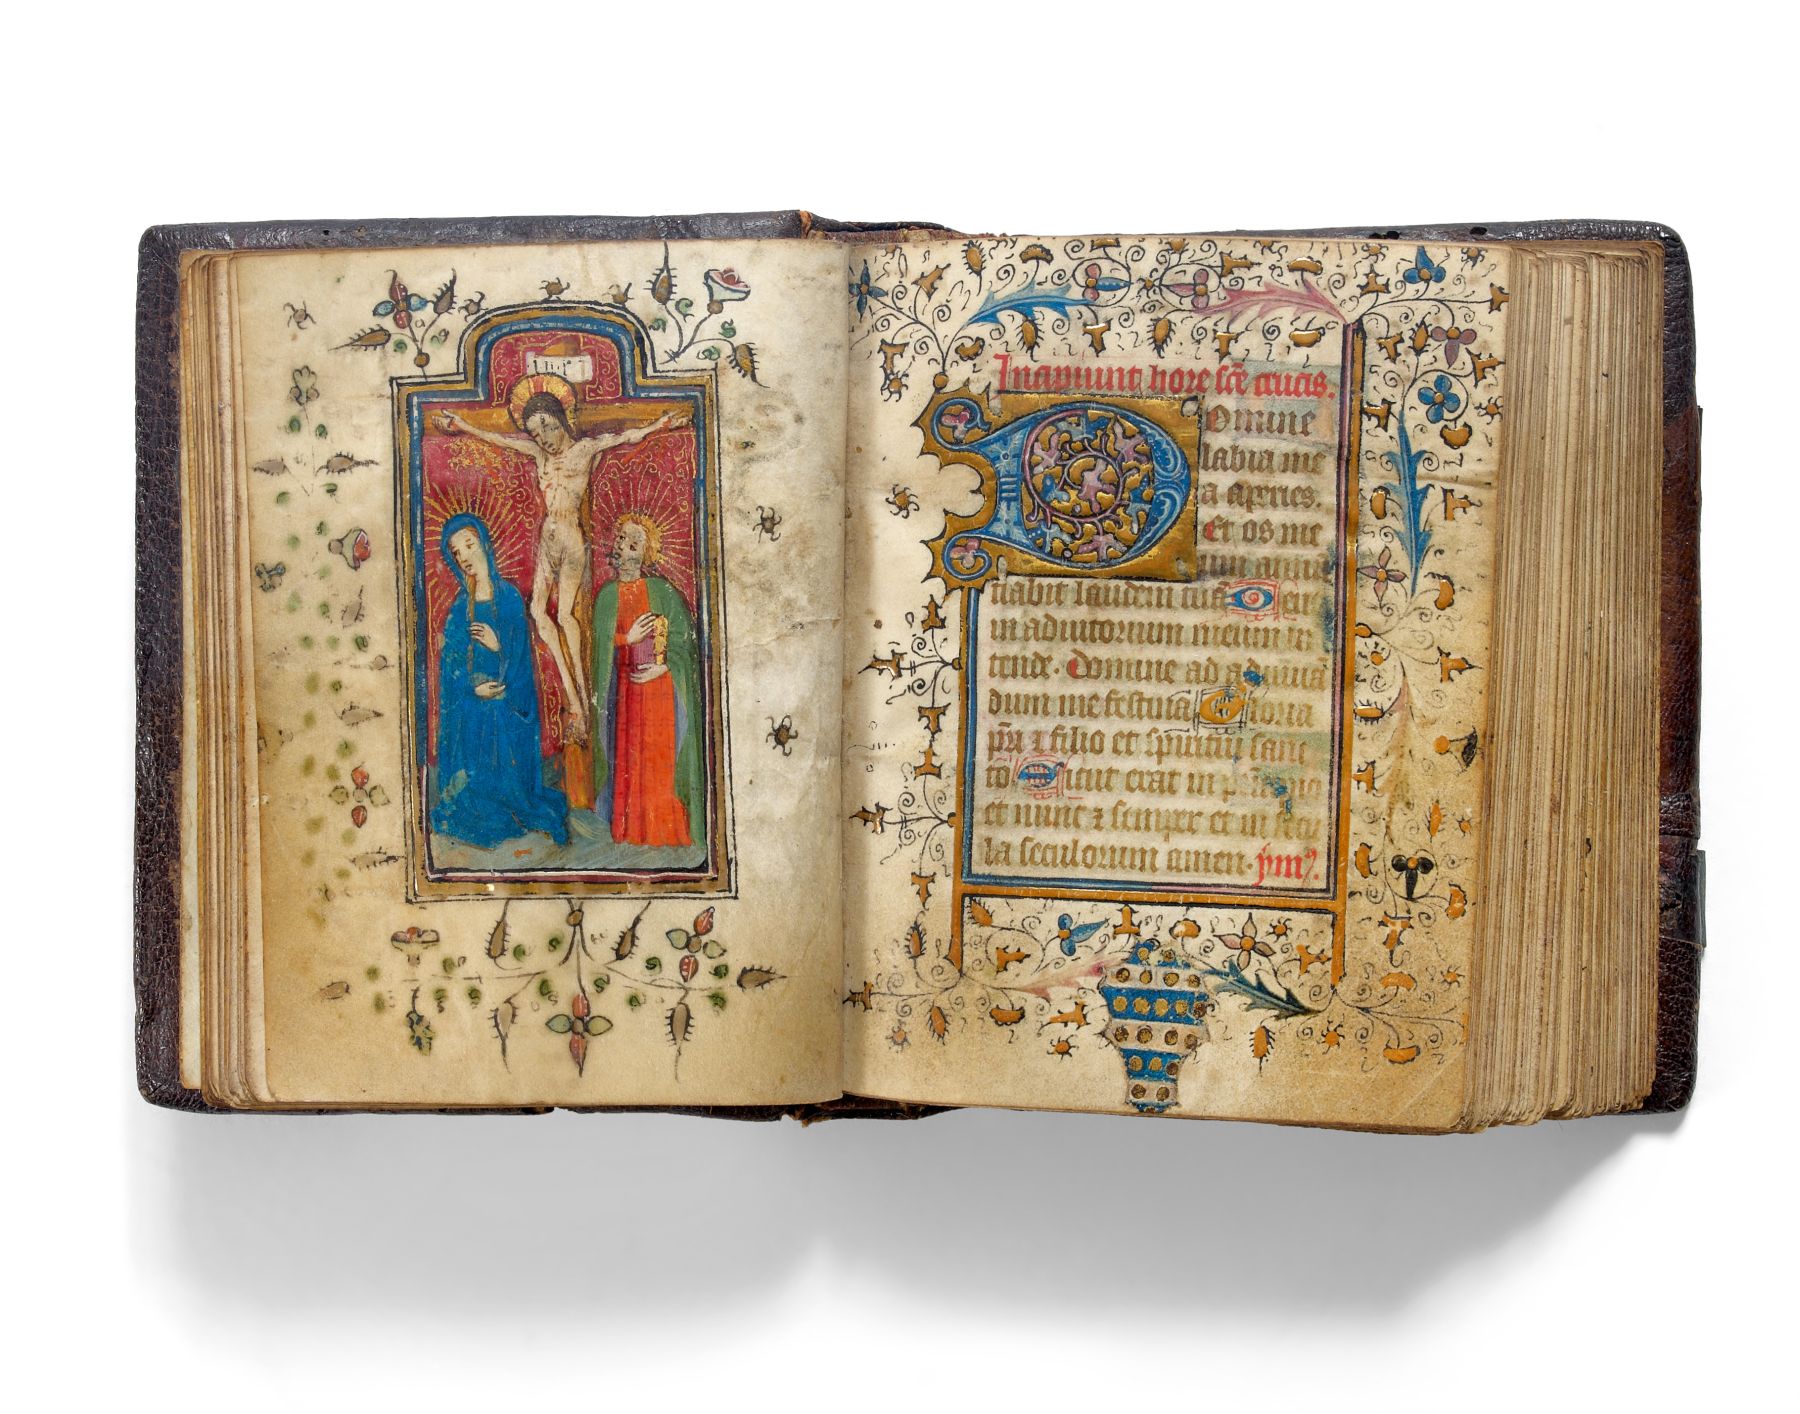 Incipiunt hore sc̄e crucis.
Domine
labia me
a apries.
Et os me
um annū
tiabit laudem tuā Deus
in adiutorium meum in
tende. Domine ad adiuuā
dum me festinā Gloria
pr̄i ⁊ filio et spiritui sanc
tō Sicut erat in
et nunc ⁊ semper et in secu
la seculorum amen. ym̄ꝰ.